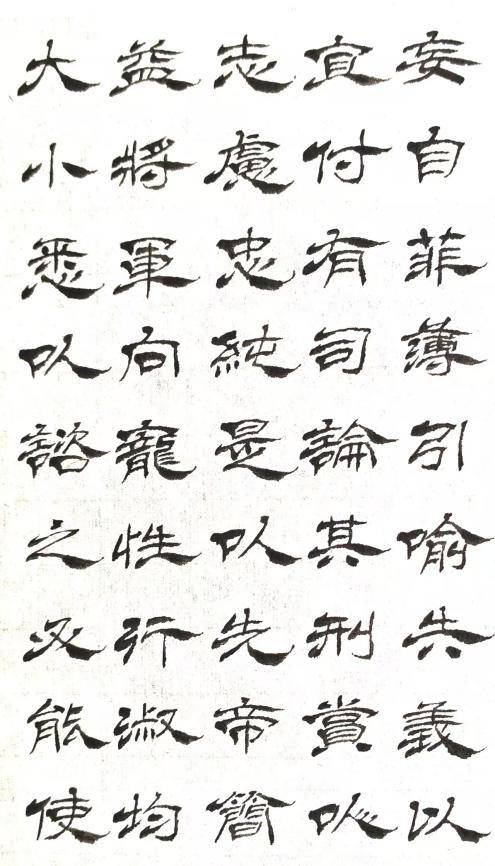 妄自菲薄引喻失義以
宜付有司論其刑賞以
志慮忠純是以先帝簡
益將軍向寵性行淑均
大小悉以諮之必能使